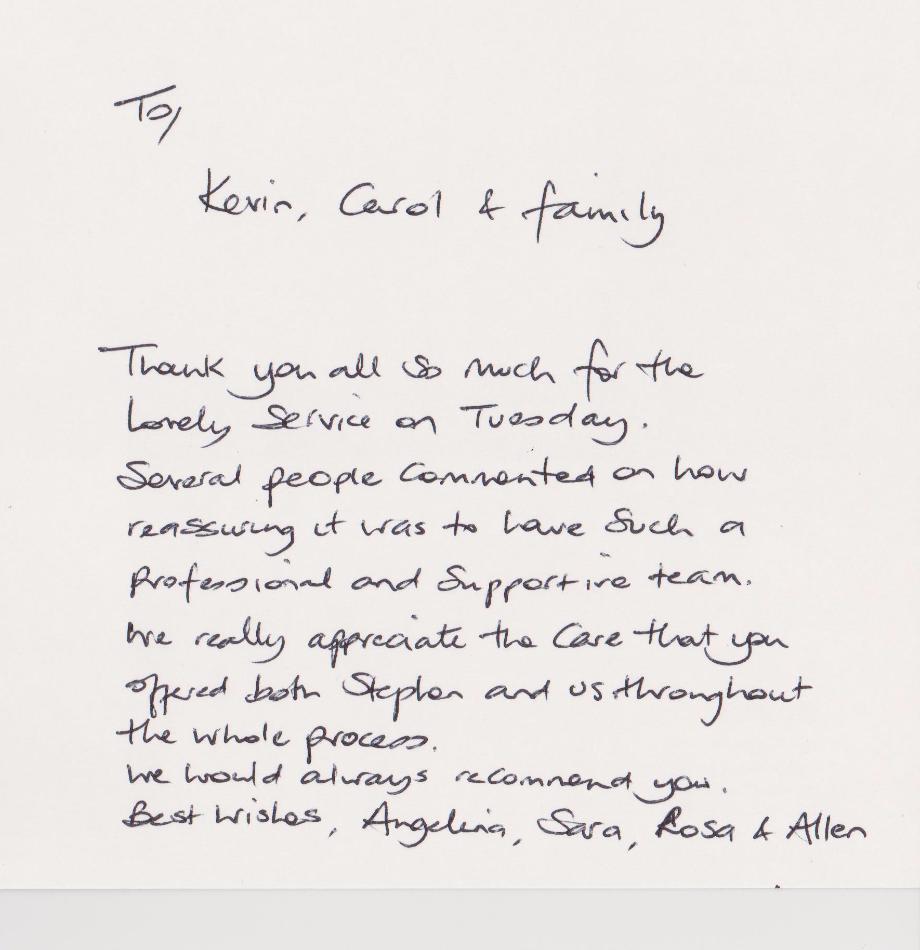 To,
Kevin, Carol & family
Thank you all so much for the
Lovely Service on Tuesday.
Several people Commented on how
reassuring it was to have Such a
Professional and Supportive team.
We really appreciate the Care that you
offered both Stephen and us throughout
the whole process.
We would always recommend you.
Best Wishes, Angelina, Sara, Rosa & Allen